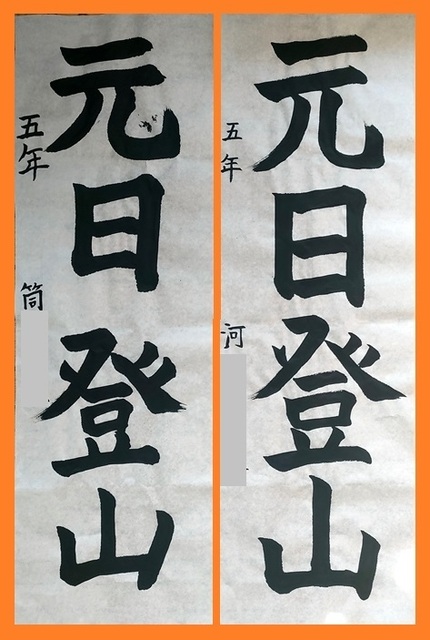 元日登山
五年
筒
元日登山
五年
河